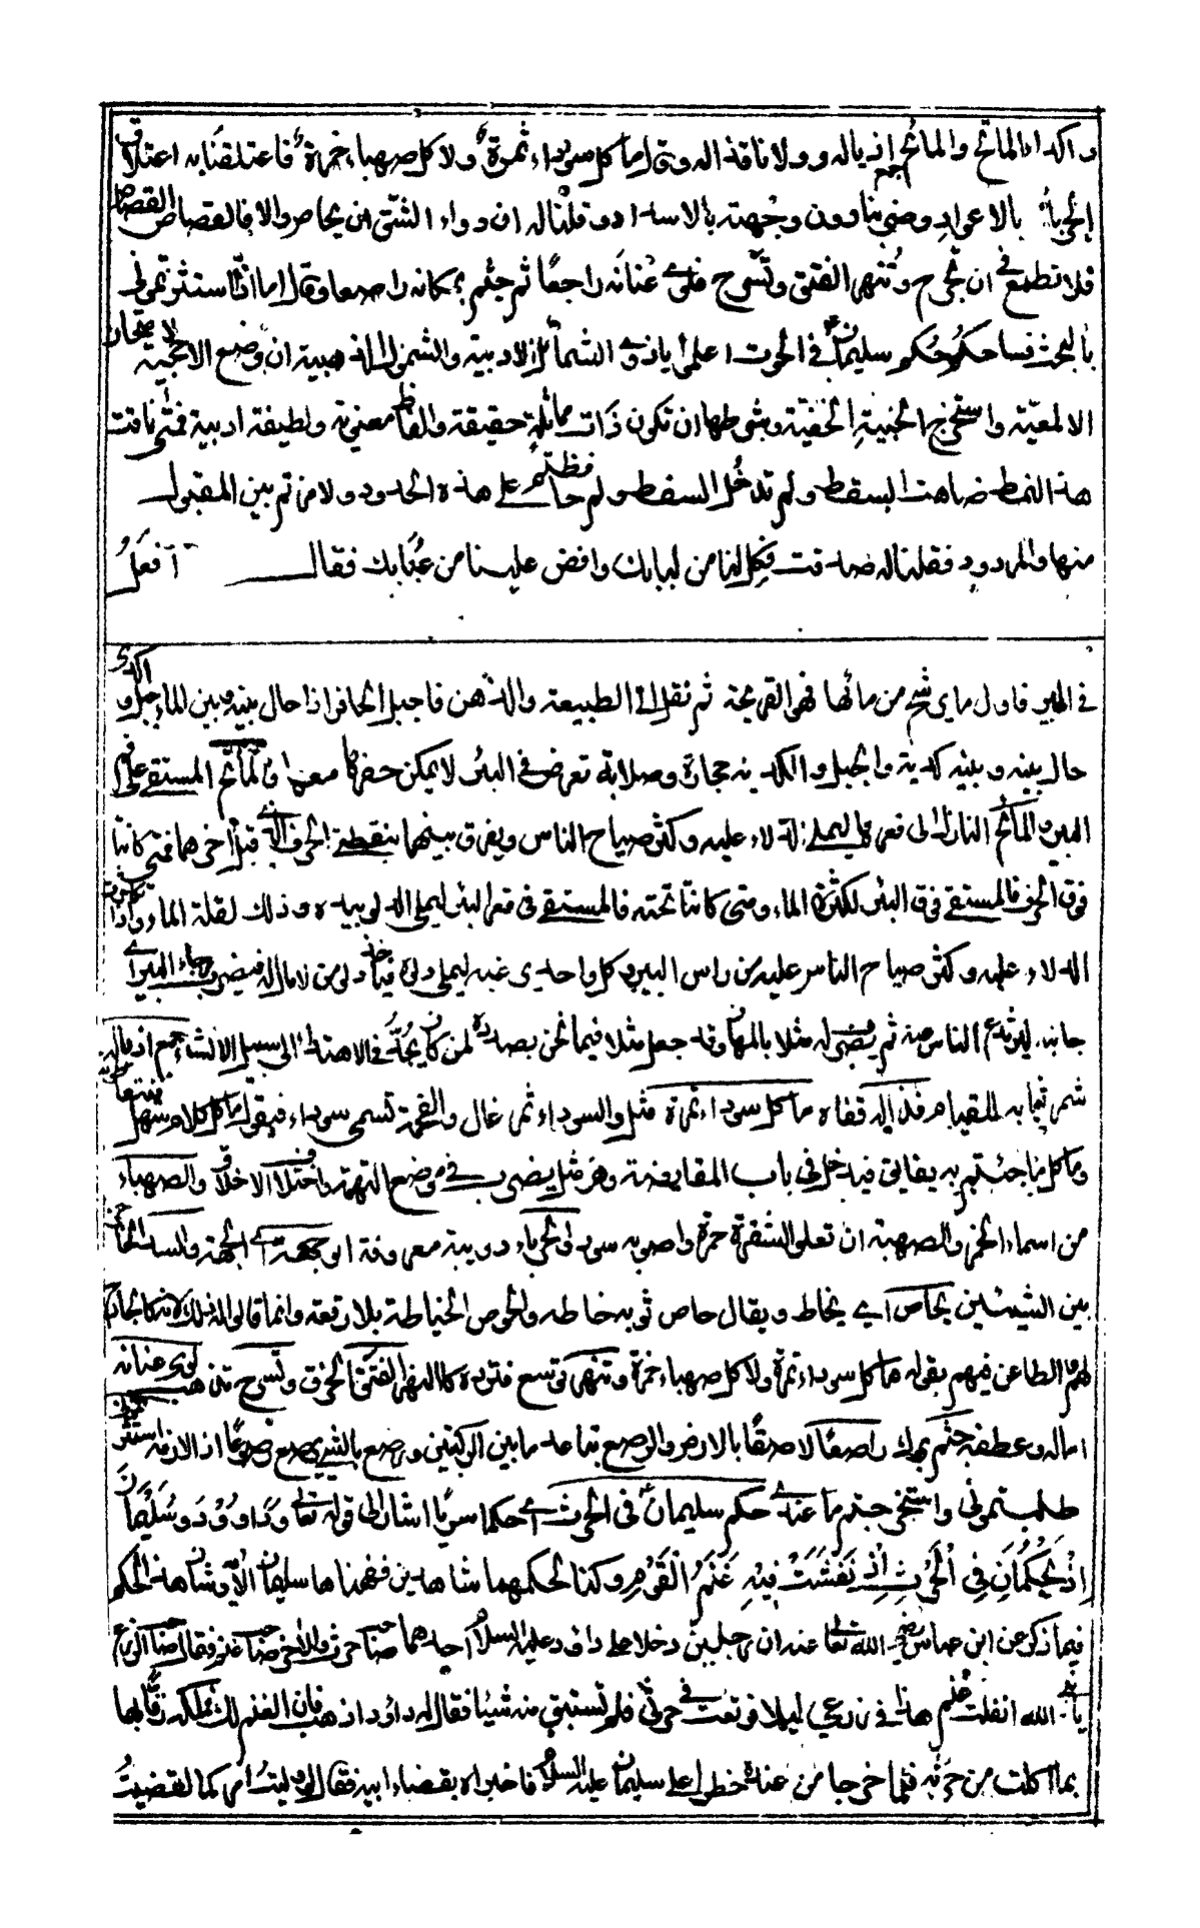 واكداء الماتح والمائح اجمع اذياله وولا ناقذاله وقال ما كل سوداء تمرة ولا كل صهباء خمرة فاعتلقنا به اعتلاق
الحرباء بالاعواد وضربنا دون وجهته بالاسداد وقلنا له ان دواء الشق ان يحاص والا فالقصاص القصاص
فلا تطمع في ان تجرح وتنهر الفتق وتسرح فلوى عنانه راجعا ثم جثم بمكانه راصعا وقال اما اذا استثرتموني
بالبحث فساحكم حكم سليمان في الحرث اعلموا يا ذوي الشمائل الادبية والشمول الذهبية ان وضع الاحجية لامتحان
الالمعية واستخراج الخبية الخفية وشرطها ان تكون ذات مماثلة حقيقة والفاظ معنوية ولطيفة ادبية فمتى نافت
هذا النمط ضاهت السقط ولم تدخل السفط ولم اركم حافظتم على هذه الحدود ولا مزتم بين المقبول
منها والمردود فقلنا له صدقت فكل لنا من لبابك وافض علينا من عبابك فقال افعل
في البير فاول ما يرشح من مائها فهو القريحة ثم نقل الى الطبيعة والذهن فاجبل الحافر اذا حال بينه وبين الماء جبل واكدى
حال بينه وبينه كدية والجبل والكدية حجارة وصلابة تعرض في البئر لا يمكن حفرها معها والماتح المستقي على فم
البير والمائح النازل الى قعرها ليملا الدلاء عليه وكثر صياح الناس ويفرق بينهما بنقطة الحرف الذي قبل اخرهما فمتى كانتا
فوق الحرف فالمستقي فوق البئر لكثرة الماء ومتى كانتا تحته فالمستقي في قعر البئر ليملي الدلو بيده وذلك لقلة الماء واذا
الدلاء عليه وكثر صياح الناس عليه من راس البير كل واحد يرغبه ليملي دلوه
جانبه ليرتدع الناس عنه ثم يضرب له مثلا بالمهان وقد جعل مثلا فيما نحن بصدده لمن كان يجد في الاهتداء الى سبيل الانشاء جمع اذياله
شمر ثيابه للقيام قذاله قفاه ما كل سوداء تمرة مثل والسوداء تمر غال والفحمة تسمى سوداء فيقول ما كل كلام سهل
وما كل ما جئتم به يقايض فيدخل في باب المقايضة وهو مثل يضرب في موضع التهمة واختلاف الاخلاق والصهباء
من اسماء الخمر والصهبة ان تعلو الشقرة حمرة واصوله سود والحرباء دويبة معروفة وجهته اي الجهة والسد الحاجز
بين الشيئين يحاص اي يخاط ويقال حاص ثوبه خاطه والحوص الخياطة بلا رقعة وانما قالوا له ذلك لانه كالجارح
لهم والطاعن فيهم بقوله ما كل سوداء تمرة ولا كل صهباء خمرة وتنهر توسع فتزيده كالنهر الفتق الخرق وتسرح تذهب لوى عنانه
اماله وعطفه جثم برك راصعا لاصقا بالارض والرصع تباعد ما بين الركبتين ورصع بالشيء يرصع رصوعا اذا لازمه استثرتموني
طلبتموني واستخرجتم ما عندي حكم سليمان في الحرث اي حكما سويا اشار الى قوله تعالى وداوود وسليمان
اذ يحكمان في الحرث اذ نفشت فيه غنم القوم وكنا لحكمهم شاهدين ففهمناها سليمان الآية وشان هذا الحكم
فيما ذكر عن ابن عباس رضي الله تعالى عنه ان رجلين دخلا على داود عليه السلام احدهما صاحب حرث والاخر صاحب غنم فقال صاحب الزرع
يا نبي الله انفلت غنم هذا في زرعي ليلا فوقعت في حرثي فلم تستبق منه شيئا فقال له داؤد اذهب فان الغنم لك تملك رقابها
بما اكلت من حرثه فلما خرجا من عنده خطرا على سليمان عليه السلام فاخبراه بقضاء ابيه فقال لو وليت امركما لقضيت